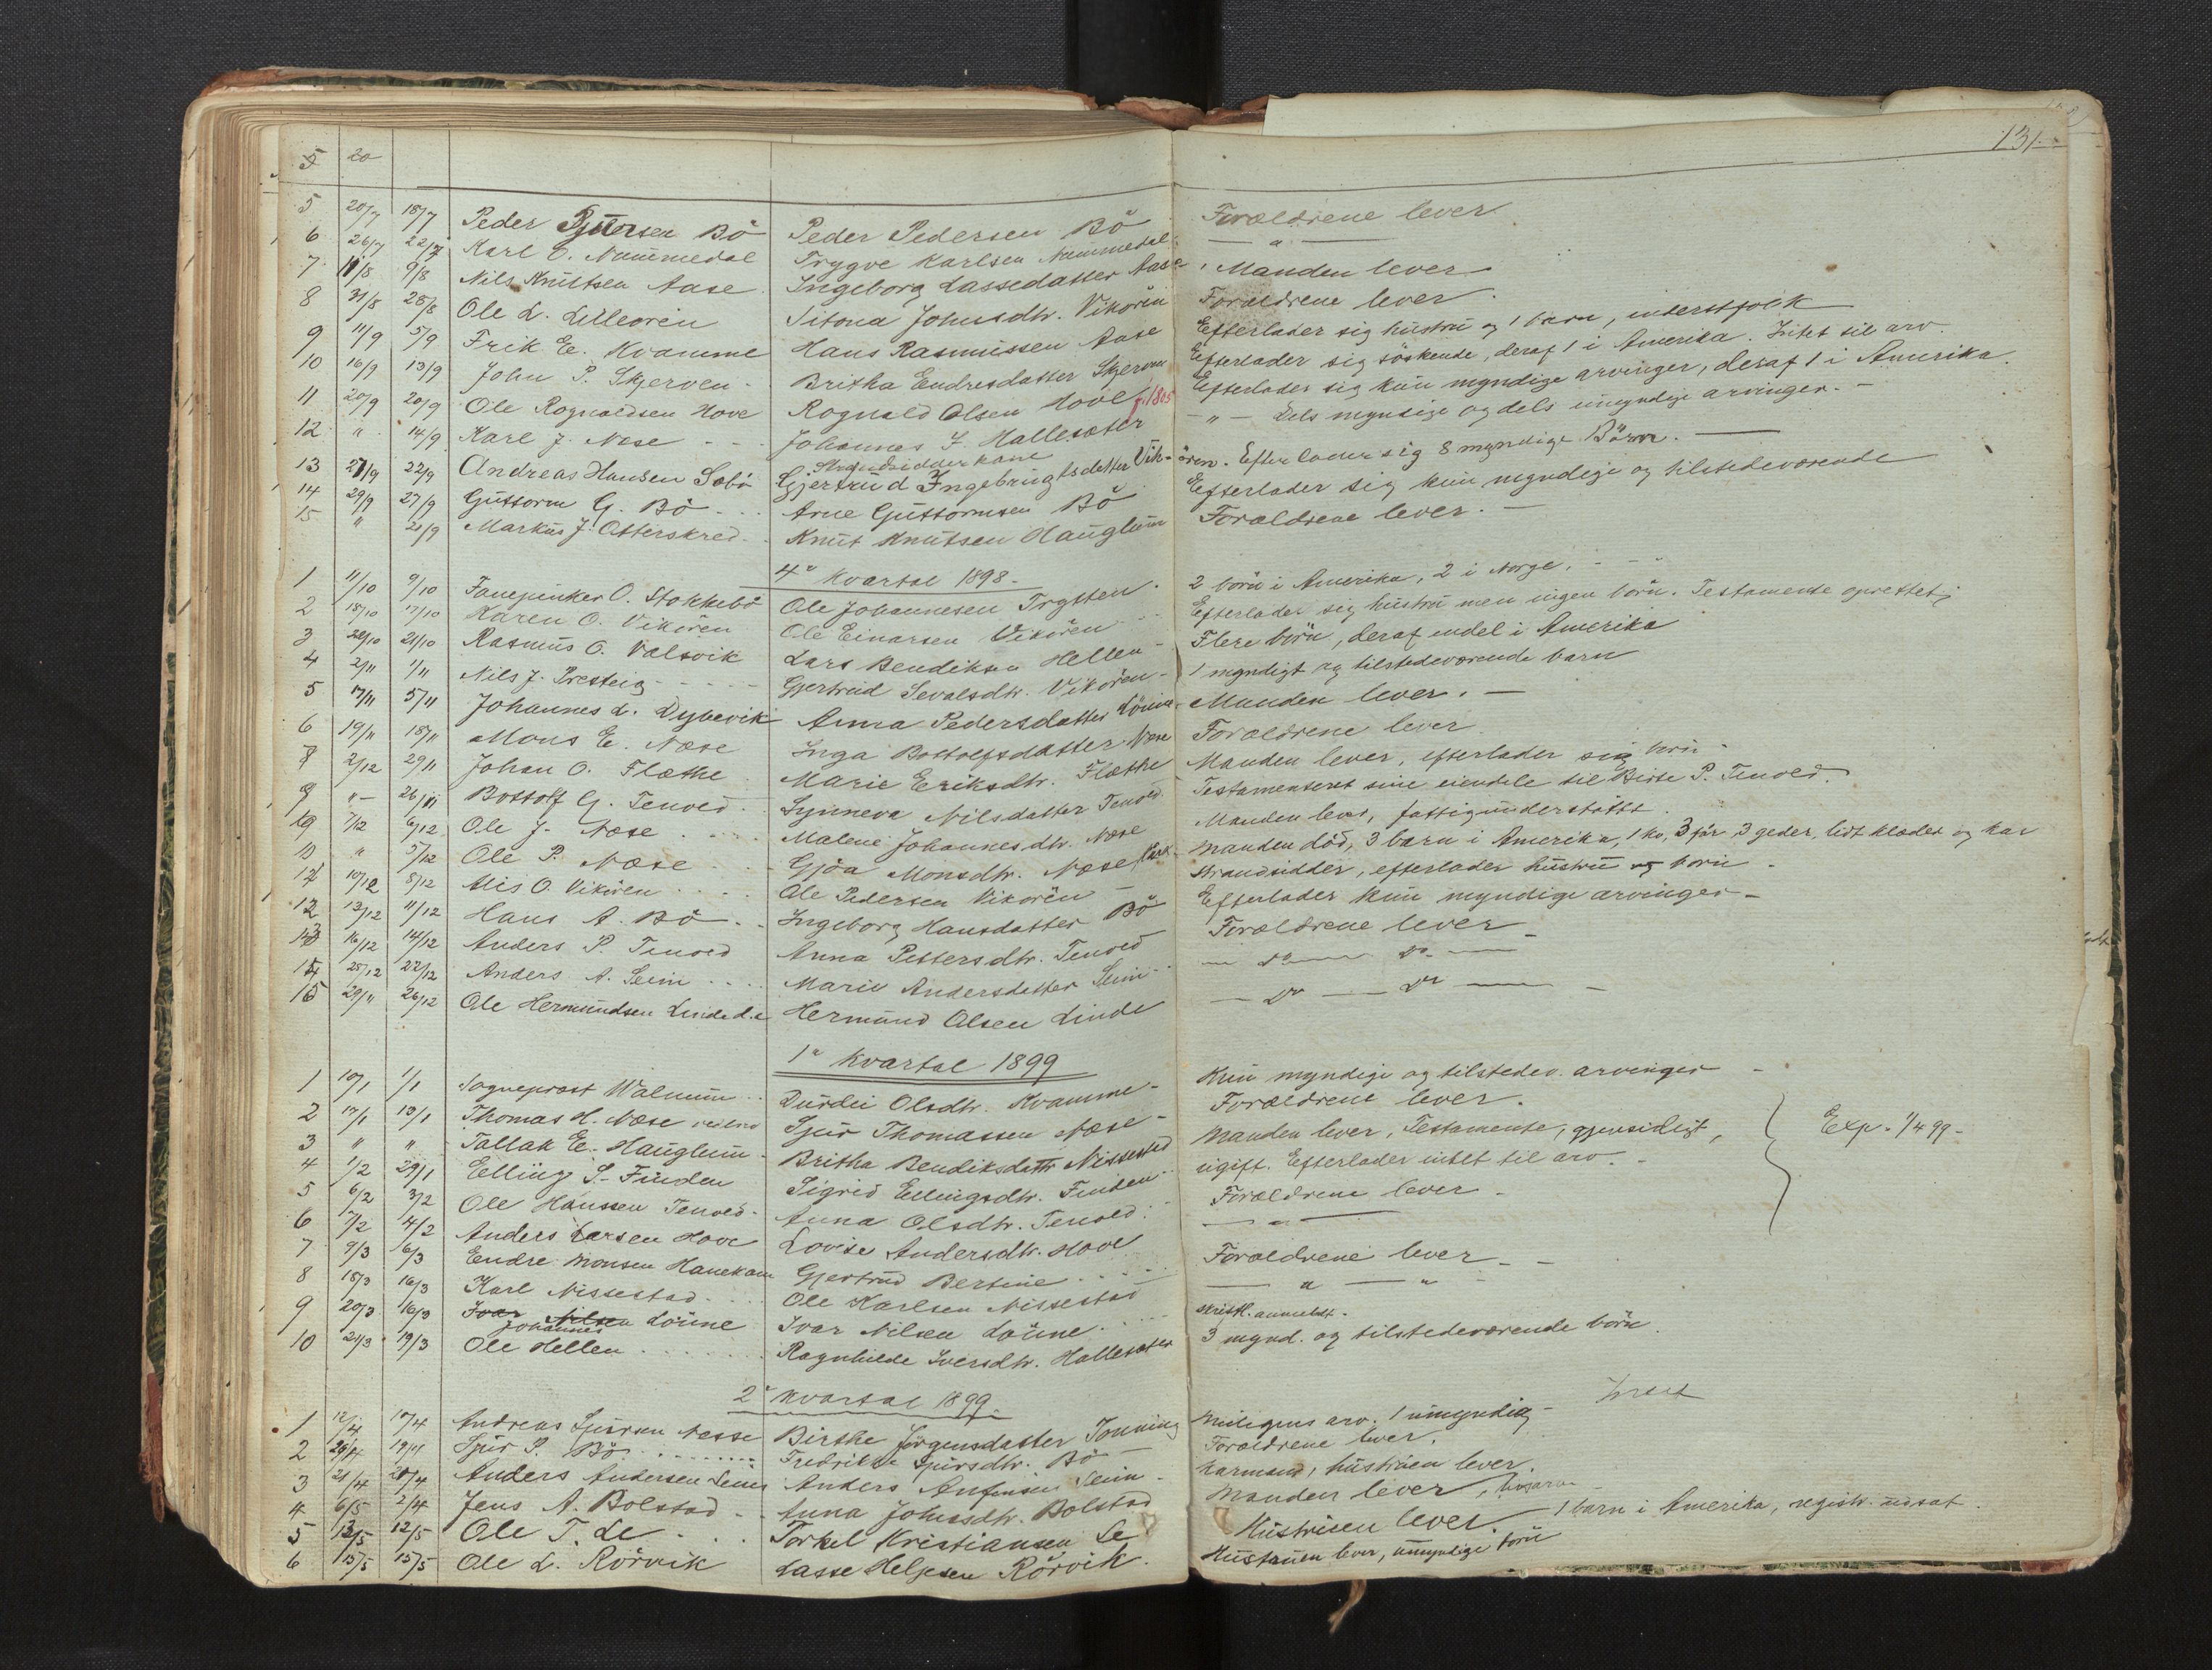 131.
5 20
5 20/7 18/7 Peder Pettersen Bö Peder Pedersen Bö Forældrene lever
6 26/7 22/7 Karl O. Nummedal Trygve Karlsen Nummedal — " —
7 11/8 9/8 Nils Knutsen Aase Ingeborg Lassedatter Aase Manden lever
8 31/8 28/8 Ole L. Lilleören Sitona Johnsdtr. Vikören Forældrene lever.
9 11/9 5/9 Erik E. Kvamme Hans Rasmussen Aase Efterlader sig hustru og 1 barn, inderstfolk
10 16/9 13/9 John P. Skjerven Britha Endresdatter Skjerven Efterlader sig söskende, deraf 1 i Amerika. Intet til arv.
11 20/9 20/9 Ole Rognaldsen Hove Rognald Olsen Hove f. 1805 Efterlader sig kun myndige arvinger, deraf 1 i Amerika.
12 " 14/9 Karl J. Nese Johannes I. Hallesæter — " — Dels myndige og dels umyndige arvinger. —
Strandsidderkone
13 27/9 22/9 Andreas Hansen Sæbö Gjertrud Ingebrigtsdatter Vikören. Efterlader sig 8 myndige Börn. —
14 29/9 27/9 Guttorm G. Bö Arne Guttormsen Bö Efterlader sig kun myndige og tilstedeværende
15 " 21/9 Markus J. Otterskred Knut Knutsen Hauglum Forældrene lever. —
4e Kvartal 1898.
1 11/10 9/10 Fanejunker O. Stokkebö Ole Johannesen Trysten 2 börn i Amerika, 2 i Norge.
2 18/10 17/10 Karen O. Vikören Ole Einarsen Vikören Efterlader sig hustru men ingen börn. Testamente oprettet;
3 28/10 21/10 Rasmus O. Valsvik Lars Bendiksen Hellen Flere börn, deraf endel i Amerika
4 2/11 1/11 Nils J. Presteig Gjertrud Sevalsdtr. Vikören 1 myndigt og tilstedeværende barn
5 17/11 5/11 Johannes L. Dybevik Anna Pedersdatter Lönne Manden lever. —
6 19/11 18/11 Mons E. Næse Inga Bottolfsdatter Næse Forældrene lever
7 2/12 29/11 Johan O. Flæthe Marie Eriksdtr. Flæthe Manden lever, efterlader sig börn
8 " 26/11 Bottolf G. Tenold Synneva Nilsdatter Tenold Testamenteret sine eiendele til Birte P. Tenold.
9 7/12 6/12 Ole J. Næse Malene Johannesdtr. Næse Manden lever, fattigunderstöttet.
10 " 5/12 Ole P. Næse Gjöa Monsdtr. Næse Manden död, 3 barn i Amerika, 1 ko, 3 får 3 geder, lidt klæder og kar
11 10/12 8/12 Nis O. Vikören Ole Pedersen Vikören Strandsidder, efterlader hustru og börn
12 13/12 11/12 Hans A. Bö Ingeborg Hansdatter Bö Efterlader kun myndige arvinger —
13 16/12 14/12 Anders P. Tenold Anna Pettersdtr. Tenold Forældrene lever
14 28/12 22/12 Anders A. Seim Marie Andersdatter Seim — do — do —
15 29/11 26/12 Ole Hermundsen Linde Hermund Olsen Linde — do — do —
1e Kvartal 1899
1 10/1 1/1 Sogneprost Walnum Durdei Olsdtr. Kvamme Kun myndige og tilstedev. arvinger
2 17/1 13/1 Thomas H. Næse Sjur Thomassen Næse Forældrene lever.
3 " " Tallak E. Hauglum Britha Bendiksdatter Nissestad Manden lever, Testamente, gjensidigt, Exp. 1/4 99
4 1/2 29/1 Elling S. Finden Sigrid Ellingsdtr. Finden ugift. Efterlader intet til arv.
5 6/2 3/2 Ole Hanssen Tenold Anna Olsdtr. Tenold Forældrene lever
6 7/2 4/2 Anders Larsen Hove Lovise Andersdtr. Hove — " —
7 9/3 6/3 Endre Monsen Hanekam Gjertrud Bertine Forældrene lever
8 18/3 16/3 Karl Nissestad Ole Karlsen Nissestad — " — "
9 20/3 16/3 Ivar Nilsen Johannes Lönne Ivar Nilsen Lönne skriftl. anmeldt.
10 21/3 19/3 Ole Hellen Ragnhilde Iversdtr. Hallesæter 3 mynd. og tilstedeværende börn.
2e Kvartal 1899.
1 12/4 10/4 Andreas Sjursen Nesse Birthe Jörgensdatter Tonning arv. 1 umyndig
2 20/4 19/4 Sjur P. Bö Fredrikke Sjursdtr. Bö Forældrene lever.
3 21/4 20/4 Anders Andersen Seim Anders Anfinsen Seim Kaarmand, hustruen lever.
4 6/5 2/4 Jens A. Bolstad Anna Johnsdtr. Bolstad Manden lever,
5 13/5 12/5 Ole T. Le Torkel Kristiansen Le Hustruen lever. 1 barn i Amerika, registr. udsat.
6 15/5 15/5 Ole L. Rörvik Lasse Helgesen Rörvik. Hustruen lever, umyndige börn